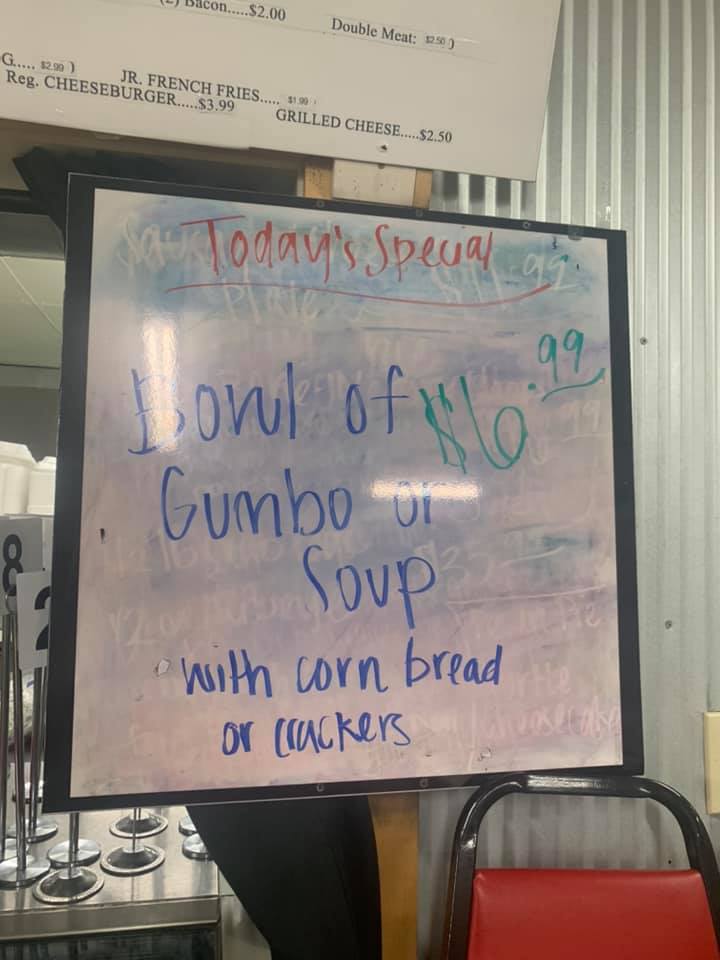 (2) Bacon.....$2.00
Double Meat: $2.50 )
G..... $2.99 )
JR. FRENCH FRIES..... $1.99
Reg. CHEESEBURGER.....$3.99
GRILLED CHEESE.....$2.50
Today's Special
Bowl of $6.99
Gumbo or
Soup
with corn bread
or crackers
8
2